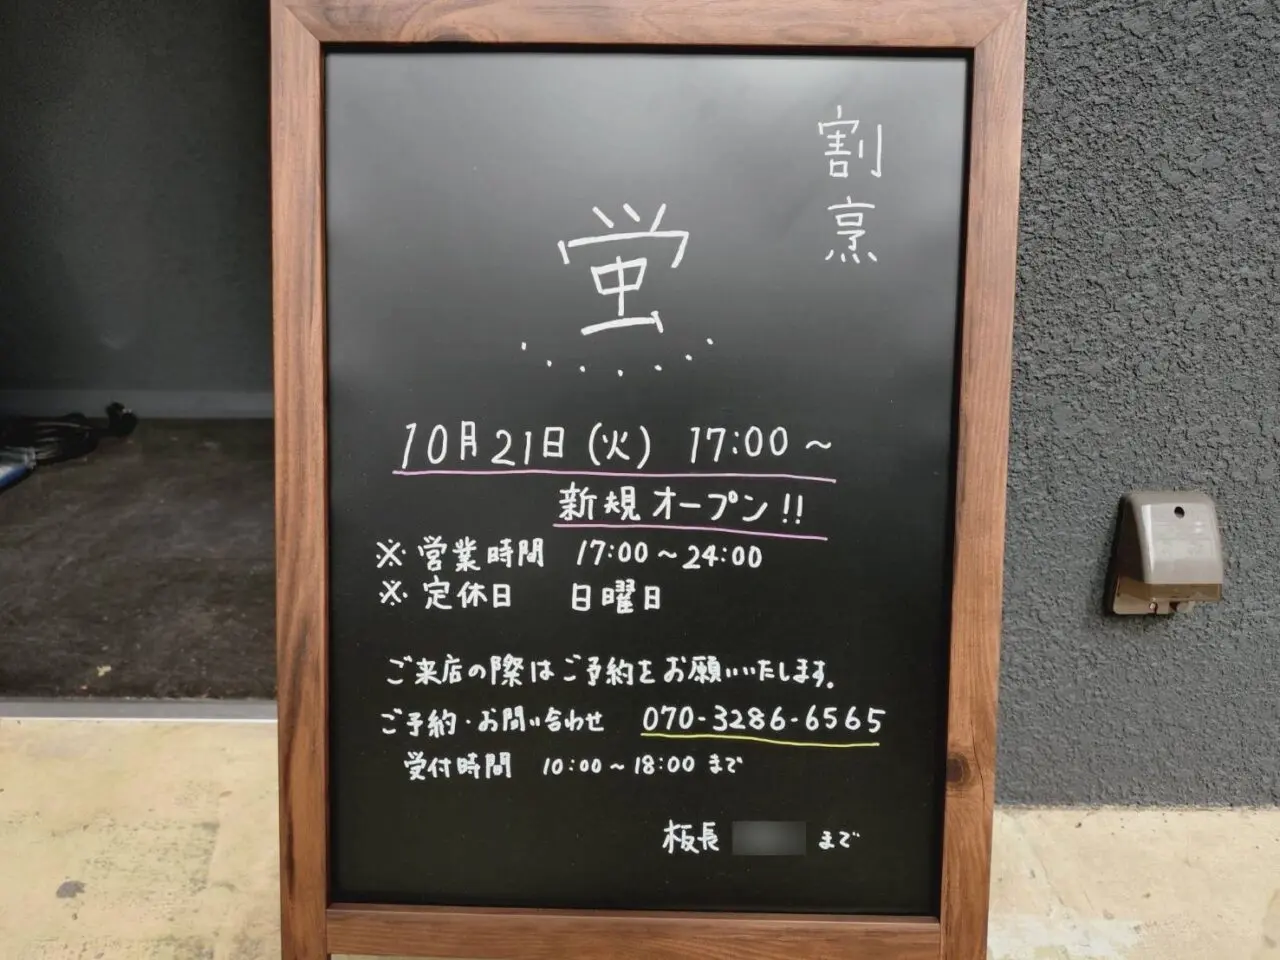 割烹
蛍
10月21日(火) 17:00～
新規オープン!!
※営業時間 17:00～24:00
※定休日 日曜日
ご来店の際はご予約をお願いいたします。
ご予約・お問い合わせ 070-3286-6565
受付時間 10:00～18:00まで
板長 まで